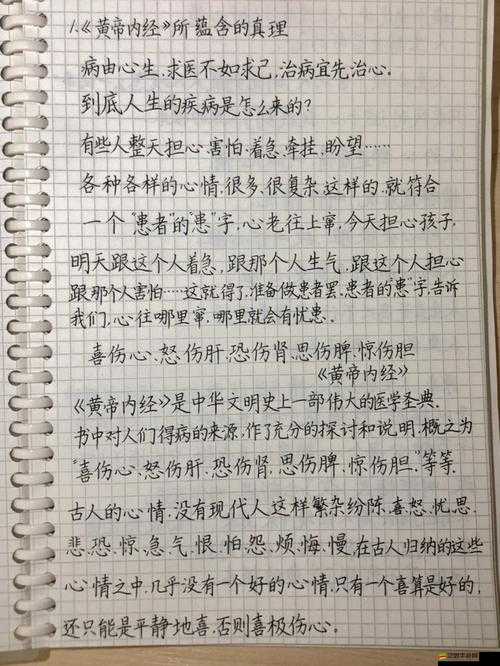 1.《黄帝内经》所蕴含的真理
病由心生,求医不如求己,治病宜先治心。
到底人生的疾病是怎么来的?
有些人整天担心.害怕.着急.牵挂.盼望……
各种各样的心情.很多.很复杂.这样的.就符合
一个“患者”的“患”字,心老往上窜,今天担心孩子,
明天跟这个人着急,跟那个人生气,跟这个人担心
跟那个人害怕……这就得了,准备做患者罢.患者的“患”字,告诉
我们,心往哪里窜,哪里就会有忧患。
喜伤心、怒伤肝,恐伤肾,思伤脾,惊伤胆
《黄帝内经》
《黄帝内经》是中华文明史上一部伟大的医学圣典.
书中对人们得病的来源,作了充分的探讨和说明.概之为
“喜伤心、怒伤肝,恐伤肾,思伤脾,惊伤胆.”等等.
古人的心情.没有现代人这样繁杂纷陈.喜.怒.忧.思.
悲.恐.惊.急.气.恨.怕.怨.烦.悔.慢.在古人归纳的这些
心情之中.几乎没有一个好的心情.只有一个喜算是好的,
还只能是平静地喜.否则喜极伤心。